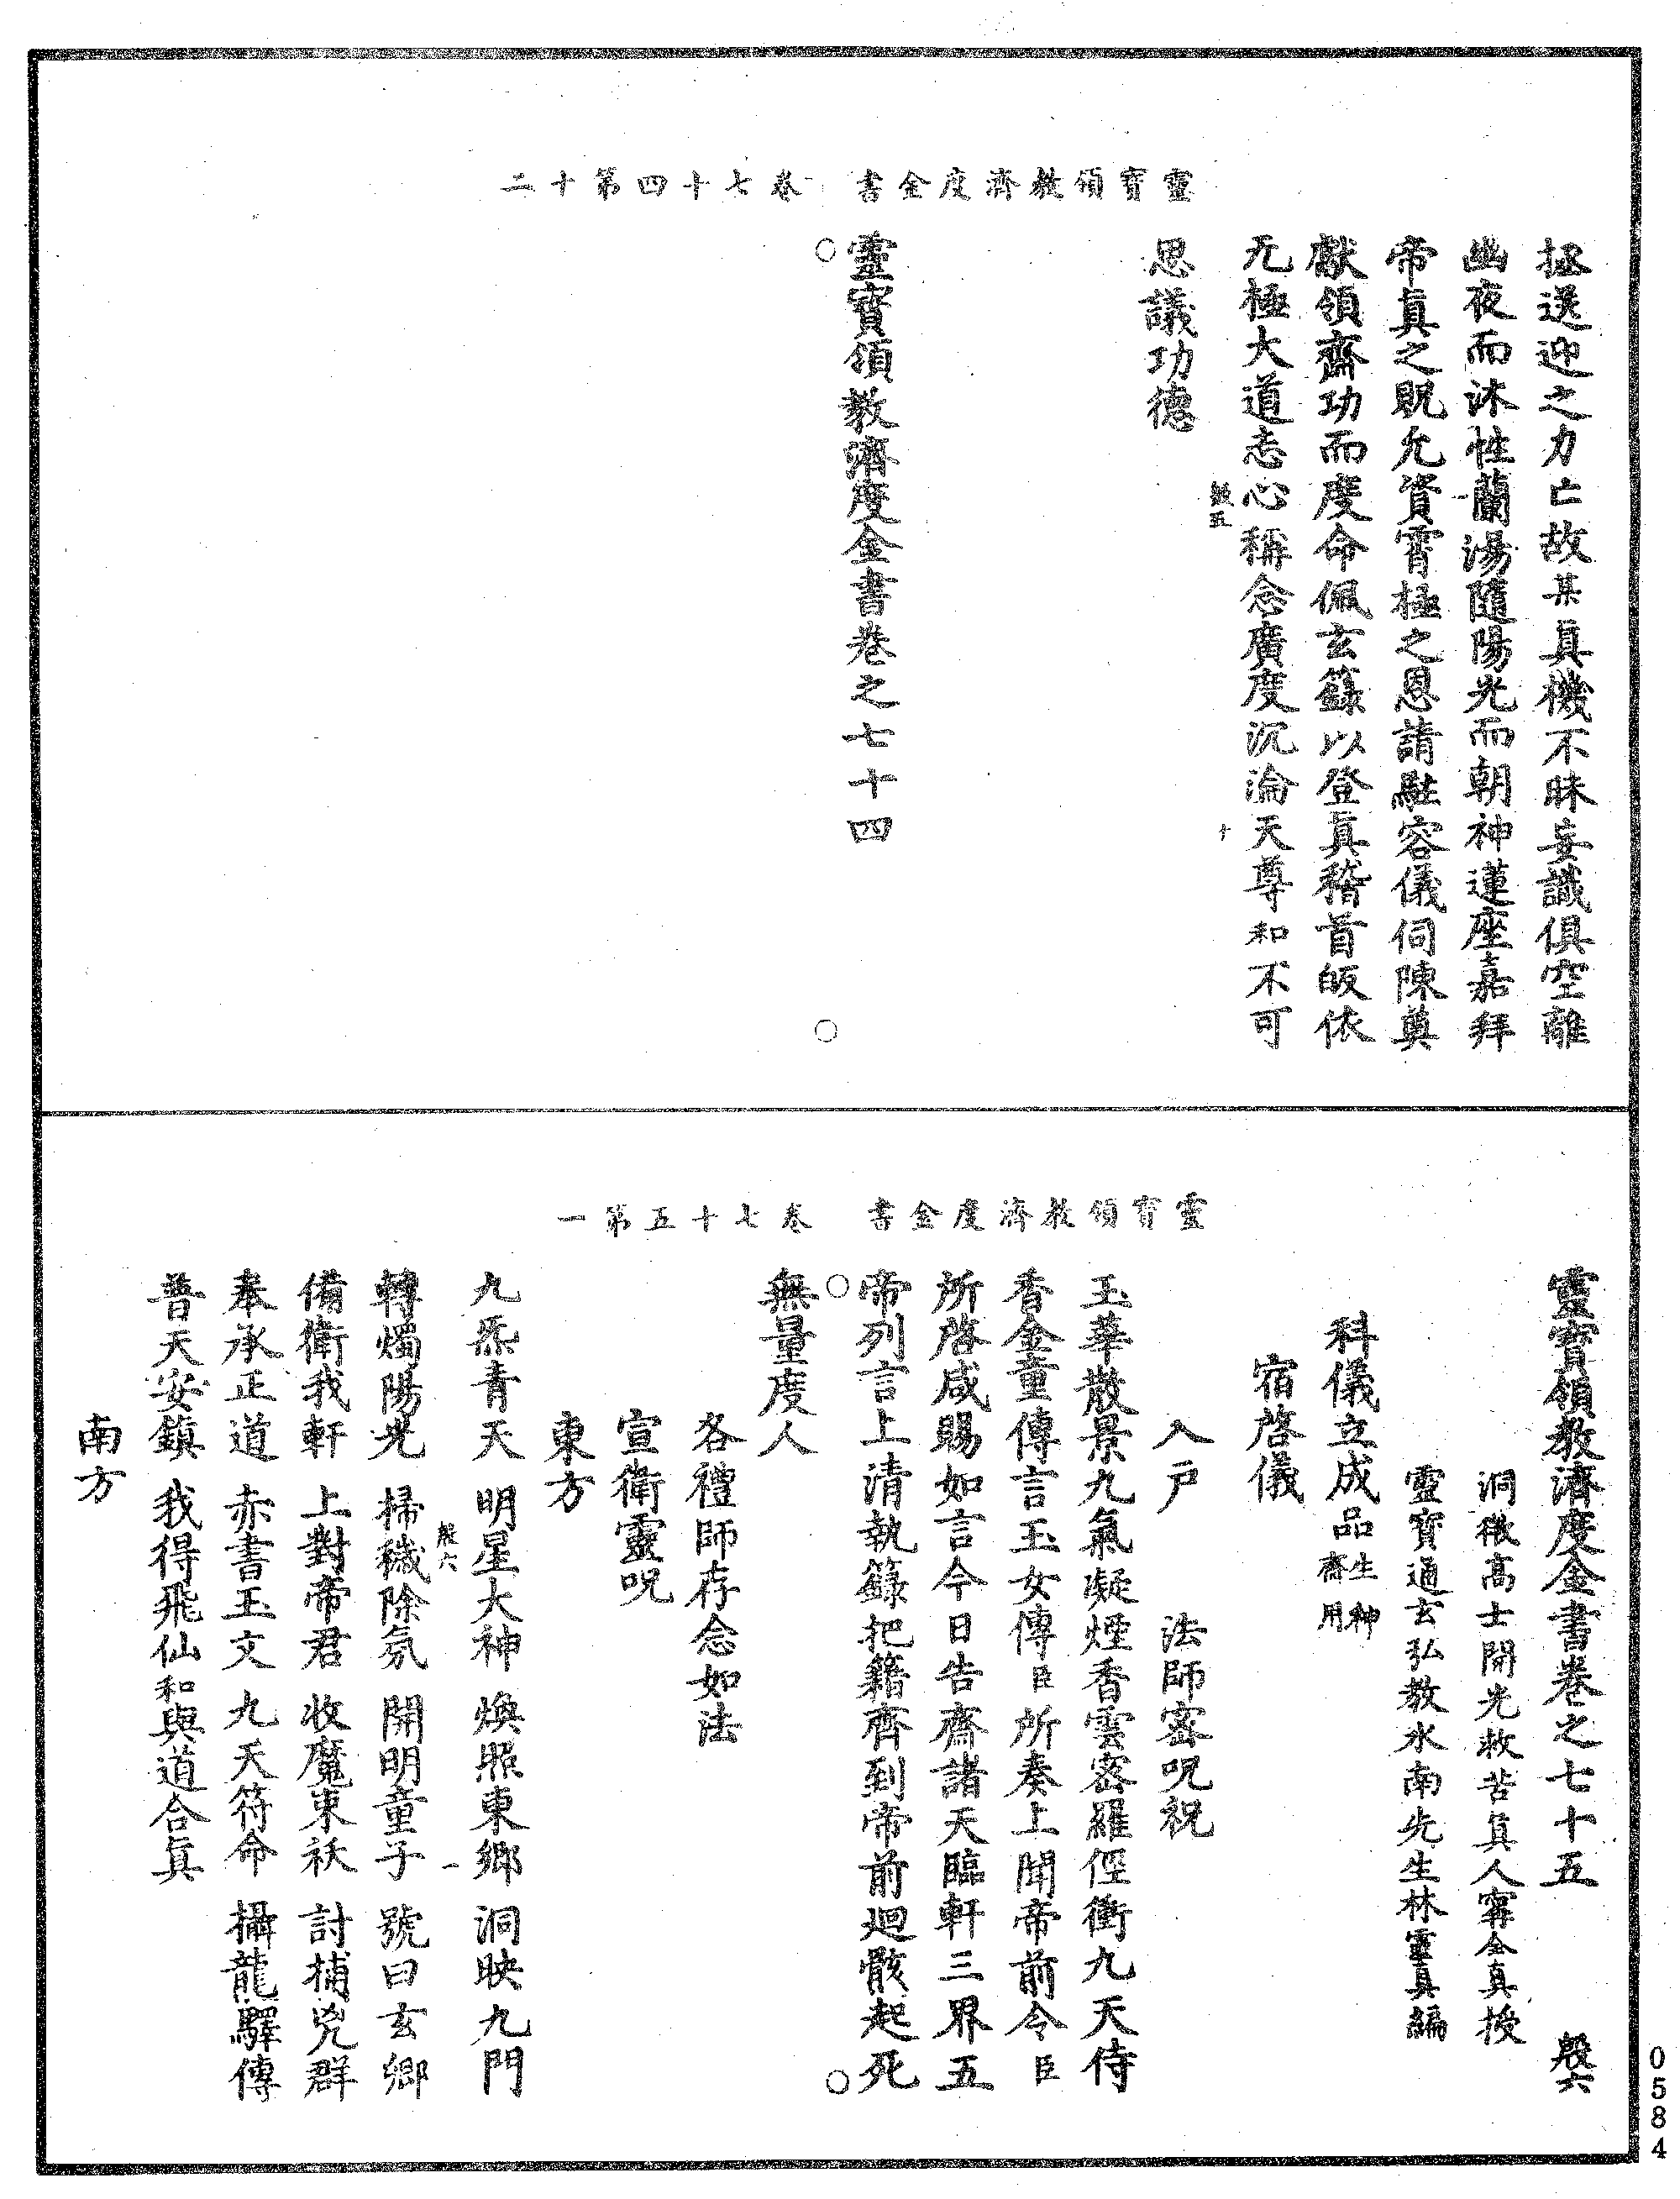 靈寶領教濟度金書　卷七十四第十二
拯送迎之力亡故某真機不昧妄識俱空離
幽夜而沐性蘭湯隨陽光而朝神蓮座嘉拜
帝真之貺允資霄極之恩請駐容儀伺陳奠
獻領齋功而度命佩玄籙以登真稽首皈依
无極大道志心稱念廣度沉淪天尊和不可
殷五　十
思議功德
靈寶領教濟度金書卷之七十四
靈寶領教濟度金書　卷七十五第一
靈寶領教濟度金書卷之七十五　殷六
洞微高士開光救苦真人甯全真授
靈寶通玄弘教水南先生林靈真編
科儀立成品生神齋用
宿啓儀
入戶　法師密呪祝
玉華散景九氣凝煙香雲密羅徑衝九天侍
香金童傳言玉女傳臣所奏上聞帝前令臣
所啓咸賜如言今日告齋諸天臨軒三界五
帝列言上清執籙把籍齊到帝前迴骸起死
無量度人
各禮師存念如法
宣衛靈呪
東方
九炁青天　明星大神　煥照東鄉　洞映九門
殷六　一
轉燭陽光　掃穢除氛　開明童子　號曰玄卿
備衛我軒　上對帝君　收魔束祅　討捕兇群
奉承正道　赤書玉文　九天符命　攝龍驛傳
普天安鎮　我得飛仙和與道合真
南方
0584